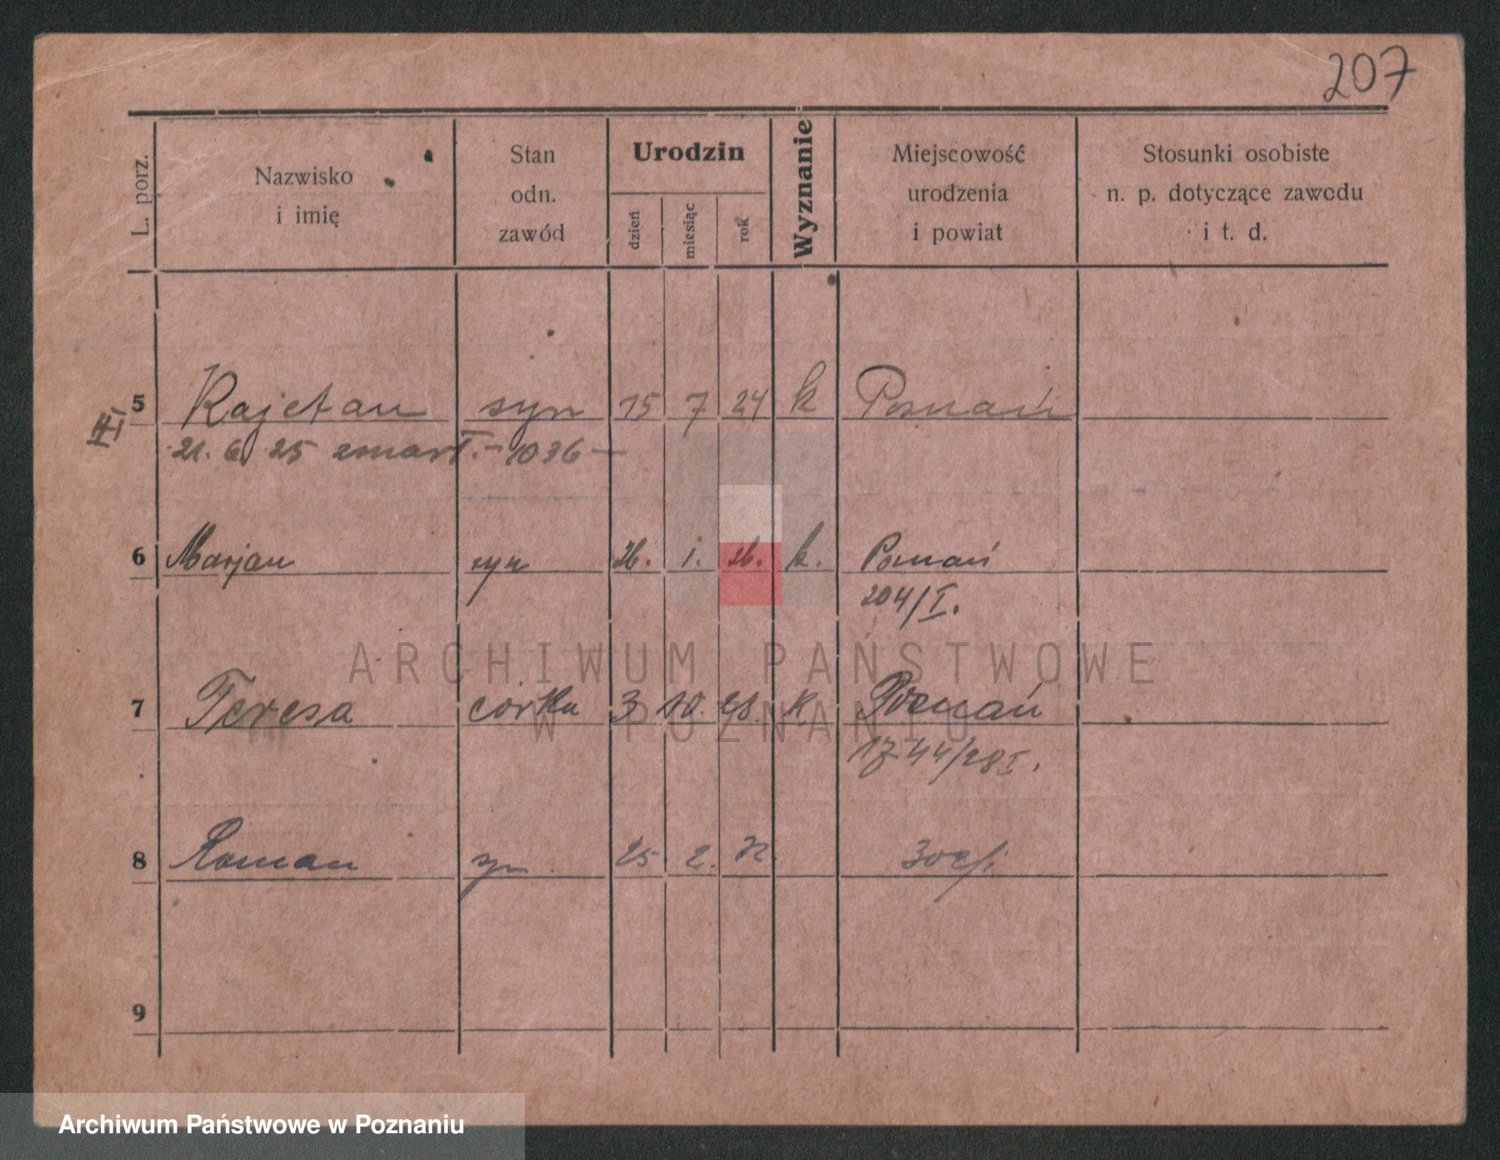 207
L. porz.
Nazwisko i imię
Stan odn. zawód
Urodzin
dzień miesiąc rok
Wyznanie
Miejscowość urodzenia i powiat
Stosunki osobiste n. p. dotyczące zawodu i t. d.
5 Kajetan syn 15 7 24 k Poznań
21. 6. 25 zmarł. - 1036 -
6 Marjan syn 26. 1. 26. k. Poznań
204/I.
7 Teresa córka 3 10. 28. k Poznań
1744/28 I.
8 Roman syn 25. 2. 32.
9
ARCHIWUM PAŃSTWOWE
W POZNANIU
Archiwum Państwowe w Poznaniu